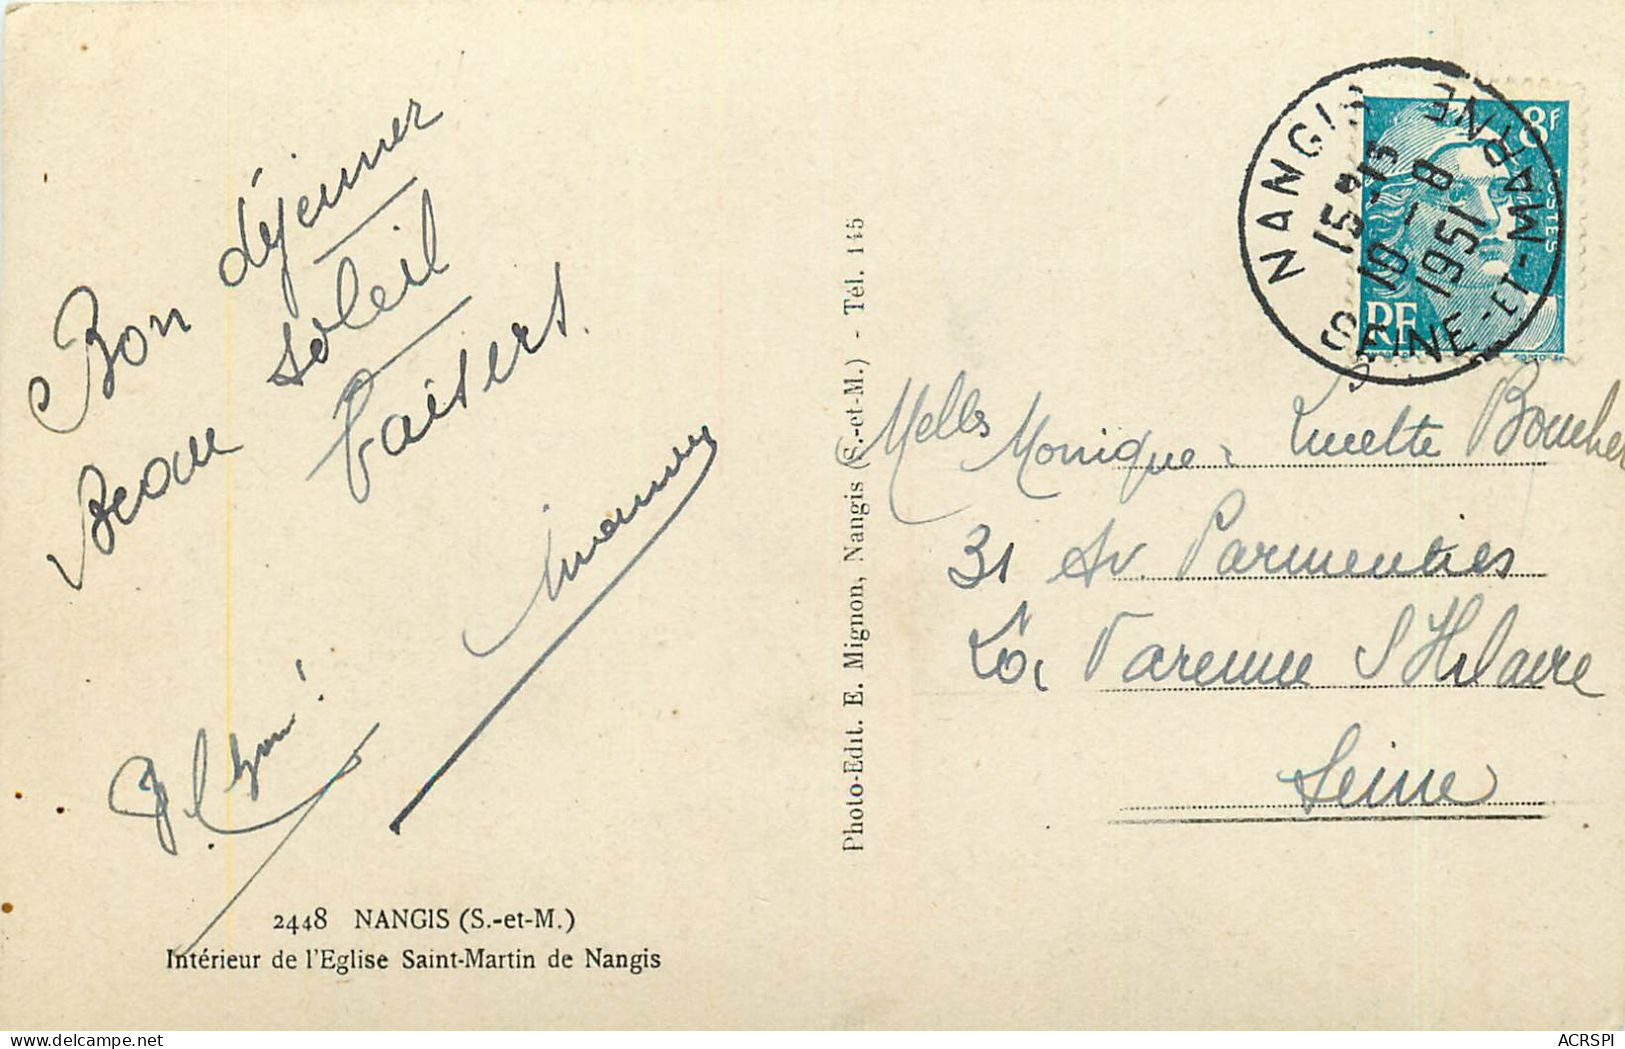 Bon déjeuner
Beau soleil
baisers.
2448 NANGIS (S.-et-M.)
Intérieur de l'Eglise Saint-Martin de Nangis
Photo-Edit. E. Mignon, Nangis (S.-et-M.) - Tél. 145
NANGIS
SEINE-ET-MARNE
15H15
10-8
1951
8F
POSTES
RF
Melles Monique Bouche
31 Av. Parmentier
La Varenne St Hilaire
Seine
ACRSPI